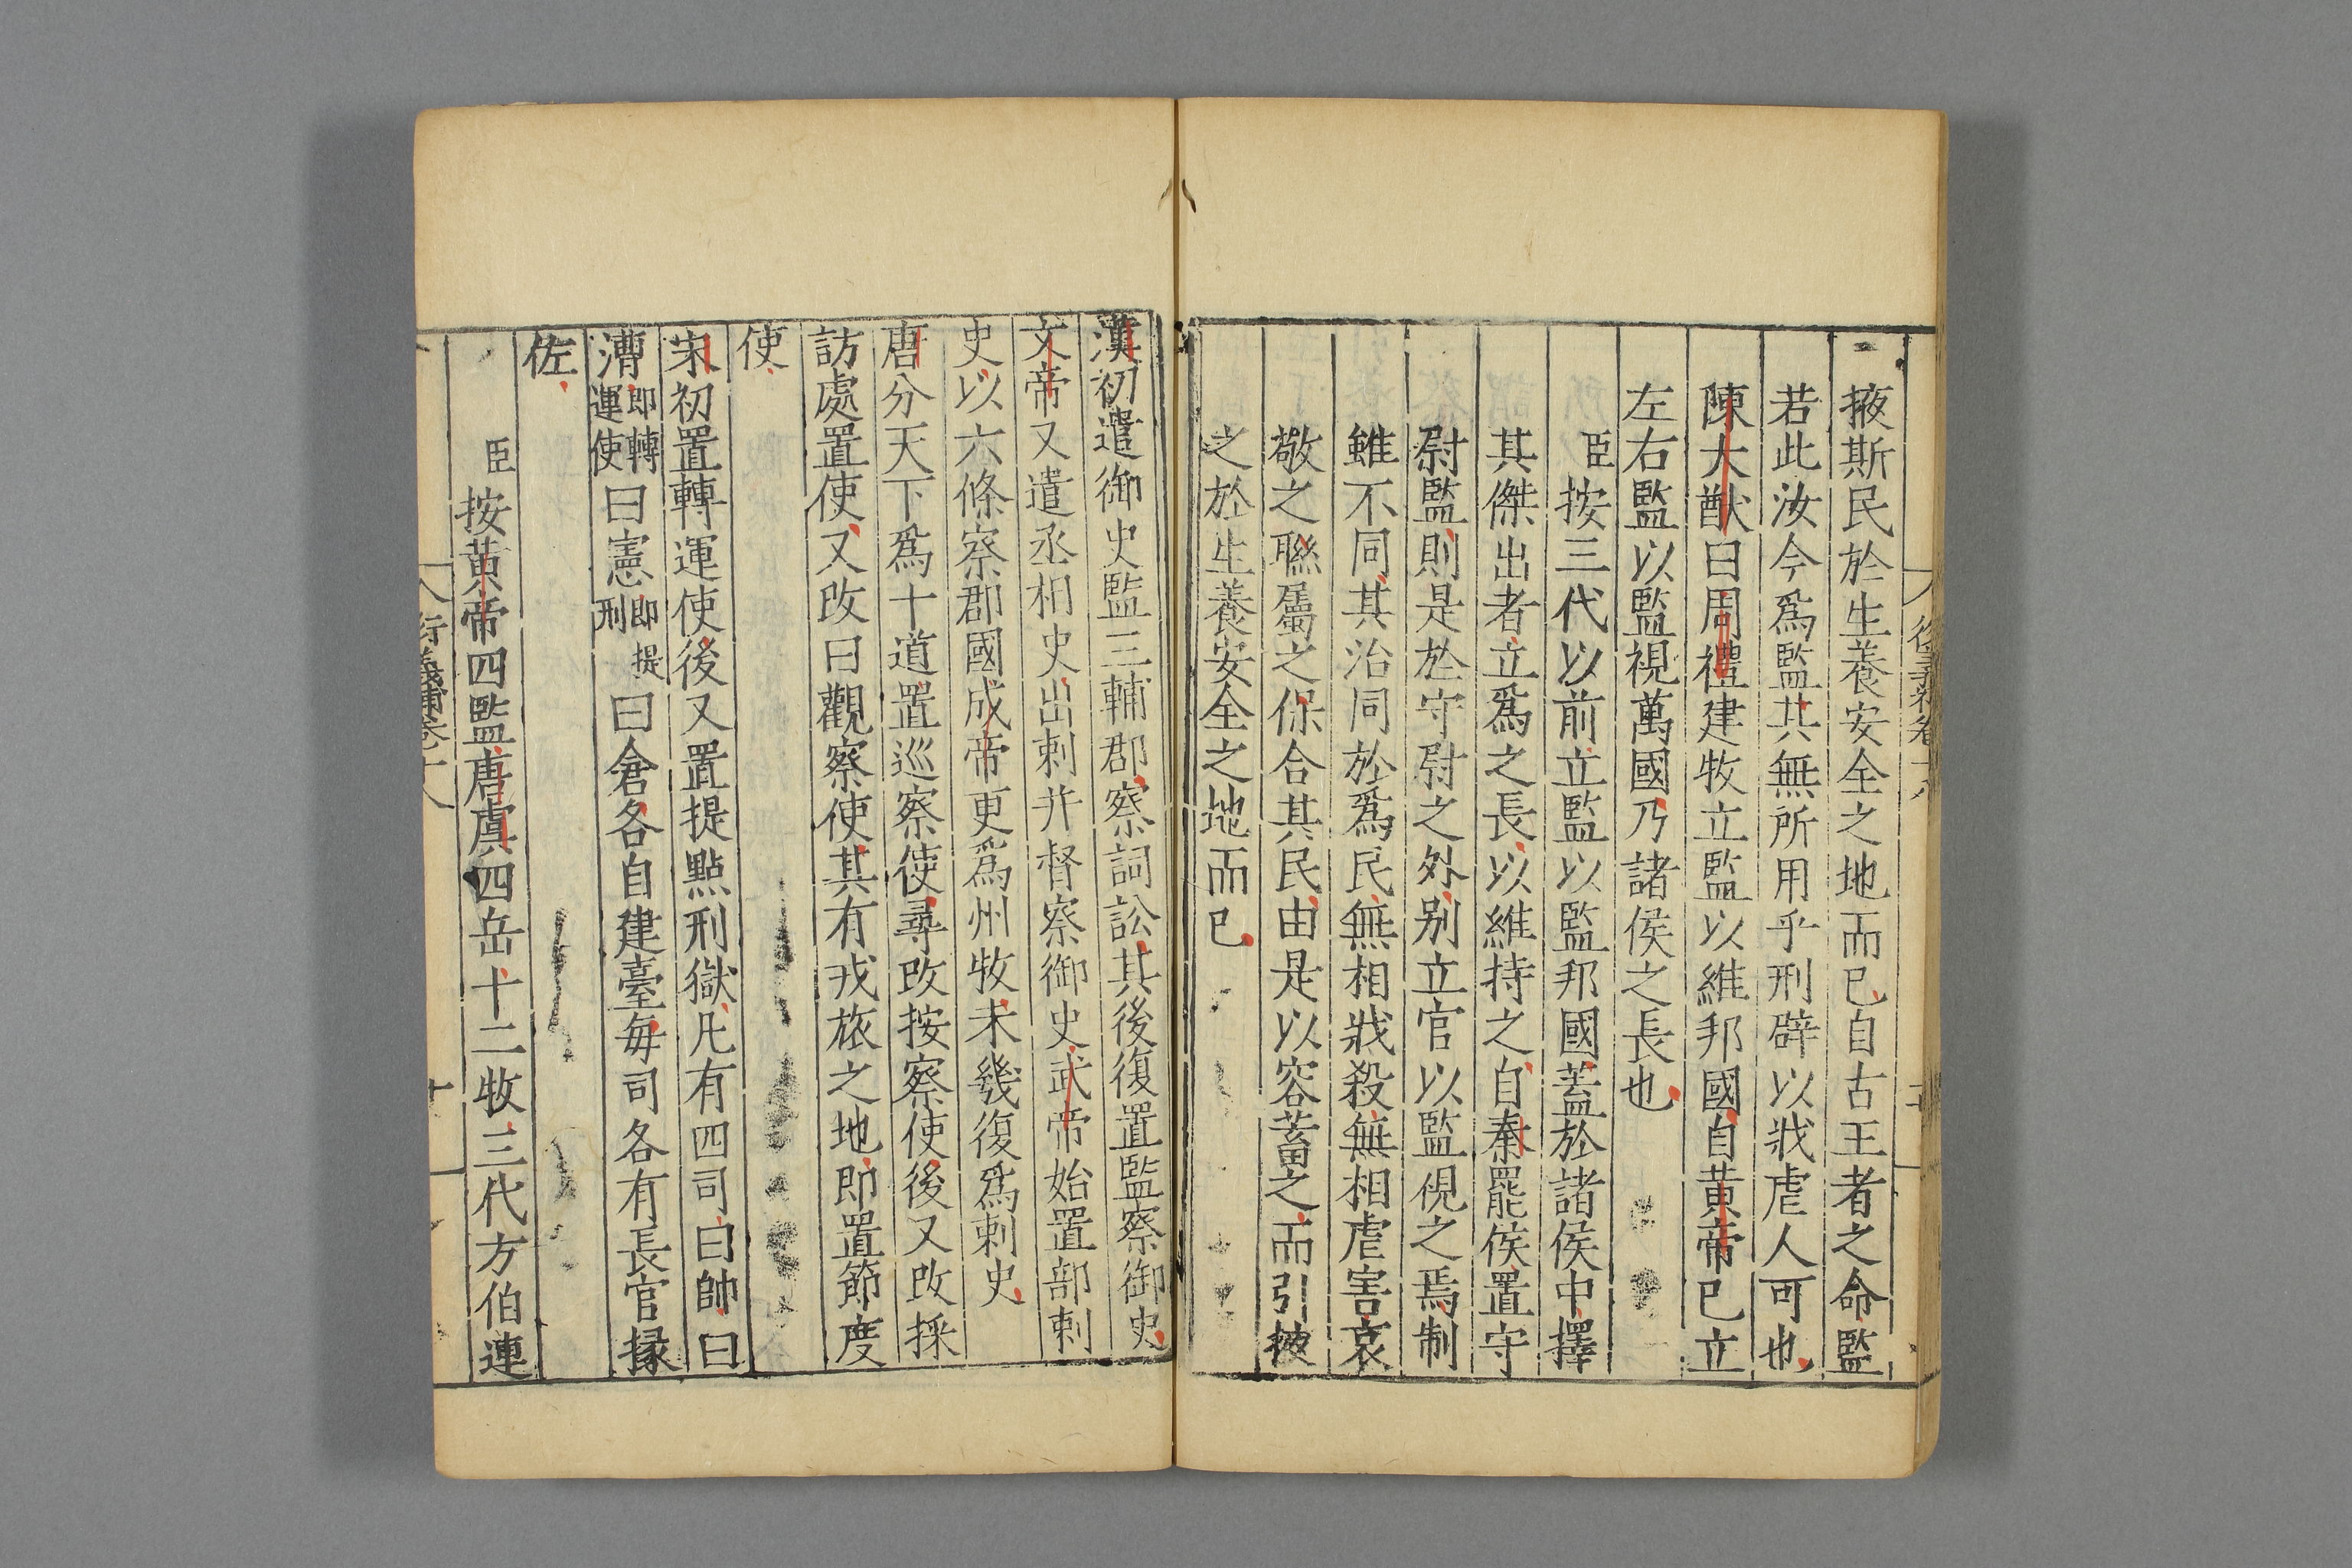 掖斯民於生養安全之地而已自古王者之命監
若此汝今爲監其無所用乎刑辟以戕虐人可也
陳大猷曰周禮建牧立監以維邦國自黃帝已立
左右監以監視萬國乃諸侯之長也
臣按三代以前立監以監邦國蓋於諸侯中擇
其傑出者立爲之長以維持之自秦罷侯置守
尉監則是於守尉之外别立官以監視之焉制
雖不同其治同於爲民無相戕殺無相虐害哀
敬之聯屬之保合其民由是以容蓄之而引掖
之於生養安全之地而已
漢初遣御史監三輔郡察詞訟其後復置監察御史
文帝又遣丞相史出刺并督察御史武帝始置部刺
史以六條察郡國成帝更爲州牧未幾復爲刺史
唐分天下爲十道置巡察使尋改按察使後又改採
訪處置使又改曰觀察使其有戎旅之地即置節度
使
宋初置轉運使後又置提點刑獄凡有四司曰帥曰
漕即轉運使曰憲即提刑曰倉各自建臺每司各有長官掾
佐
臣按黃帝四監唐虞四岳十二牧三代方伯連